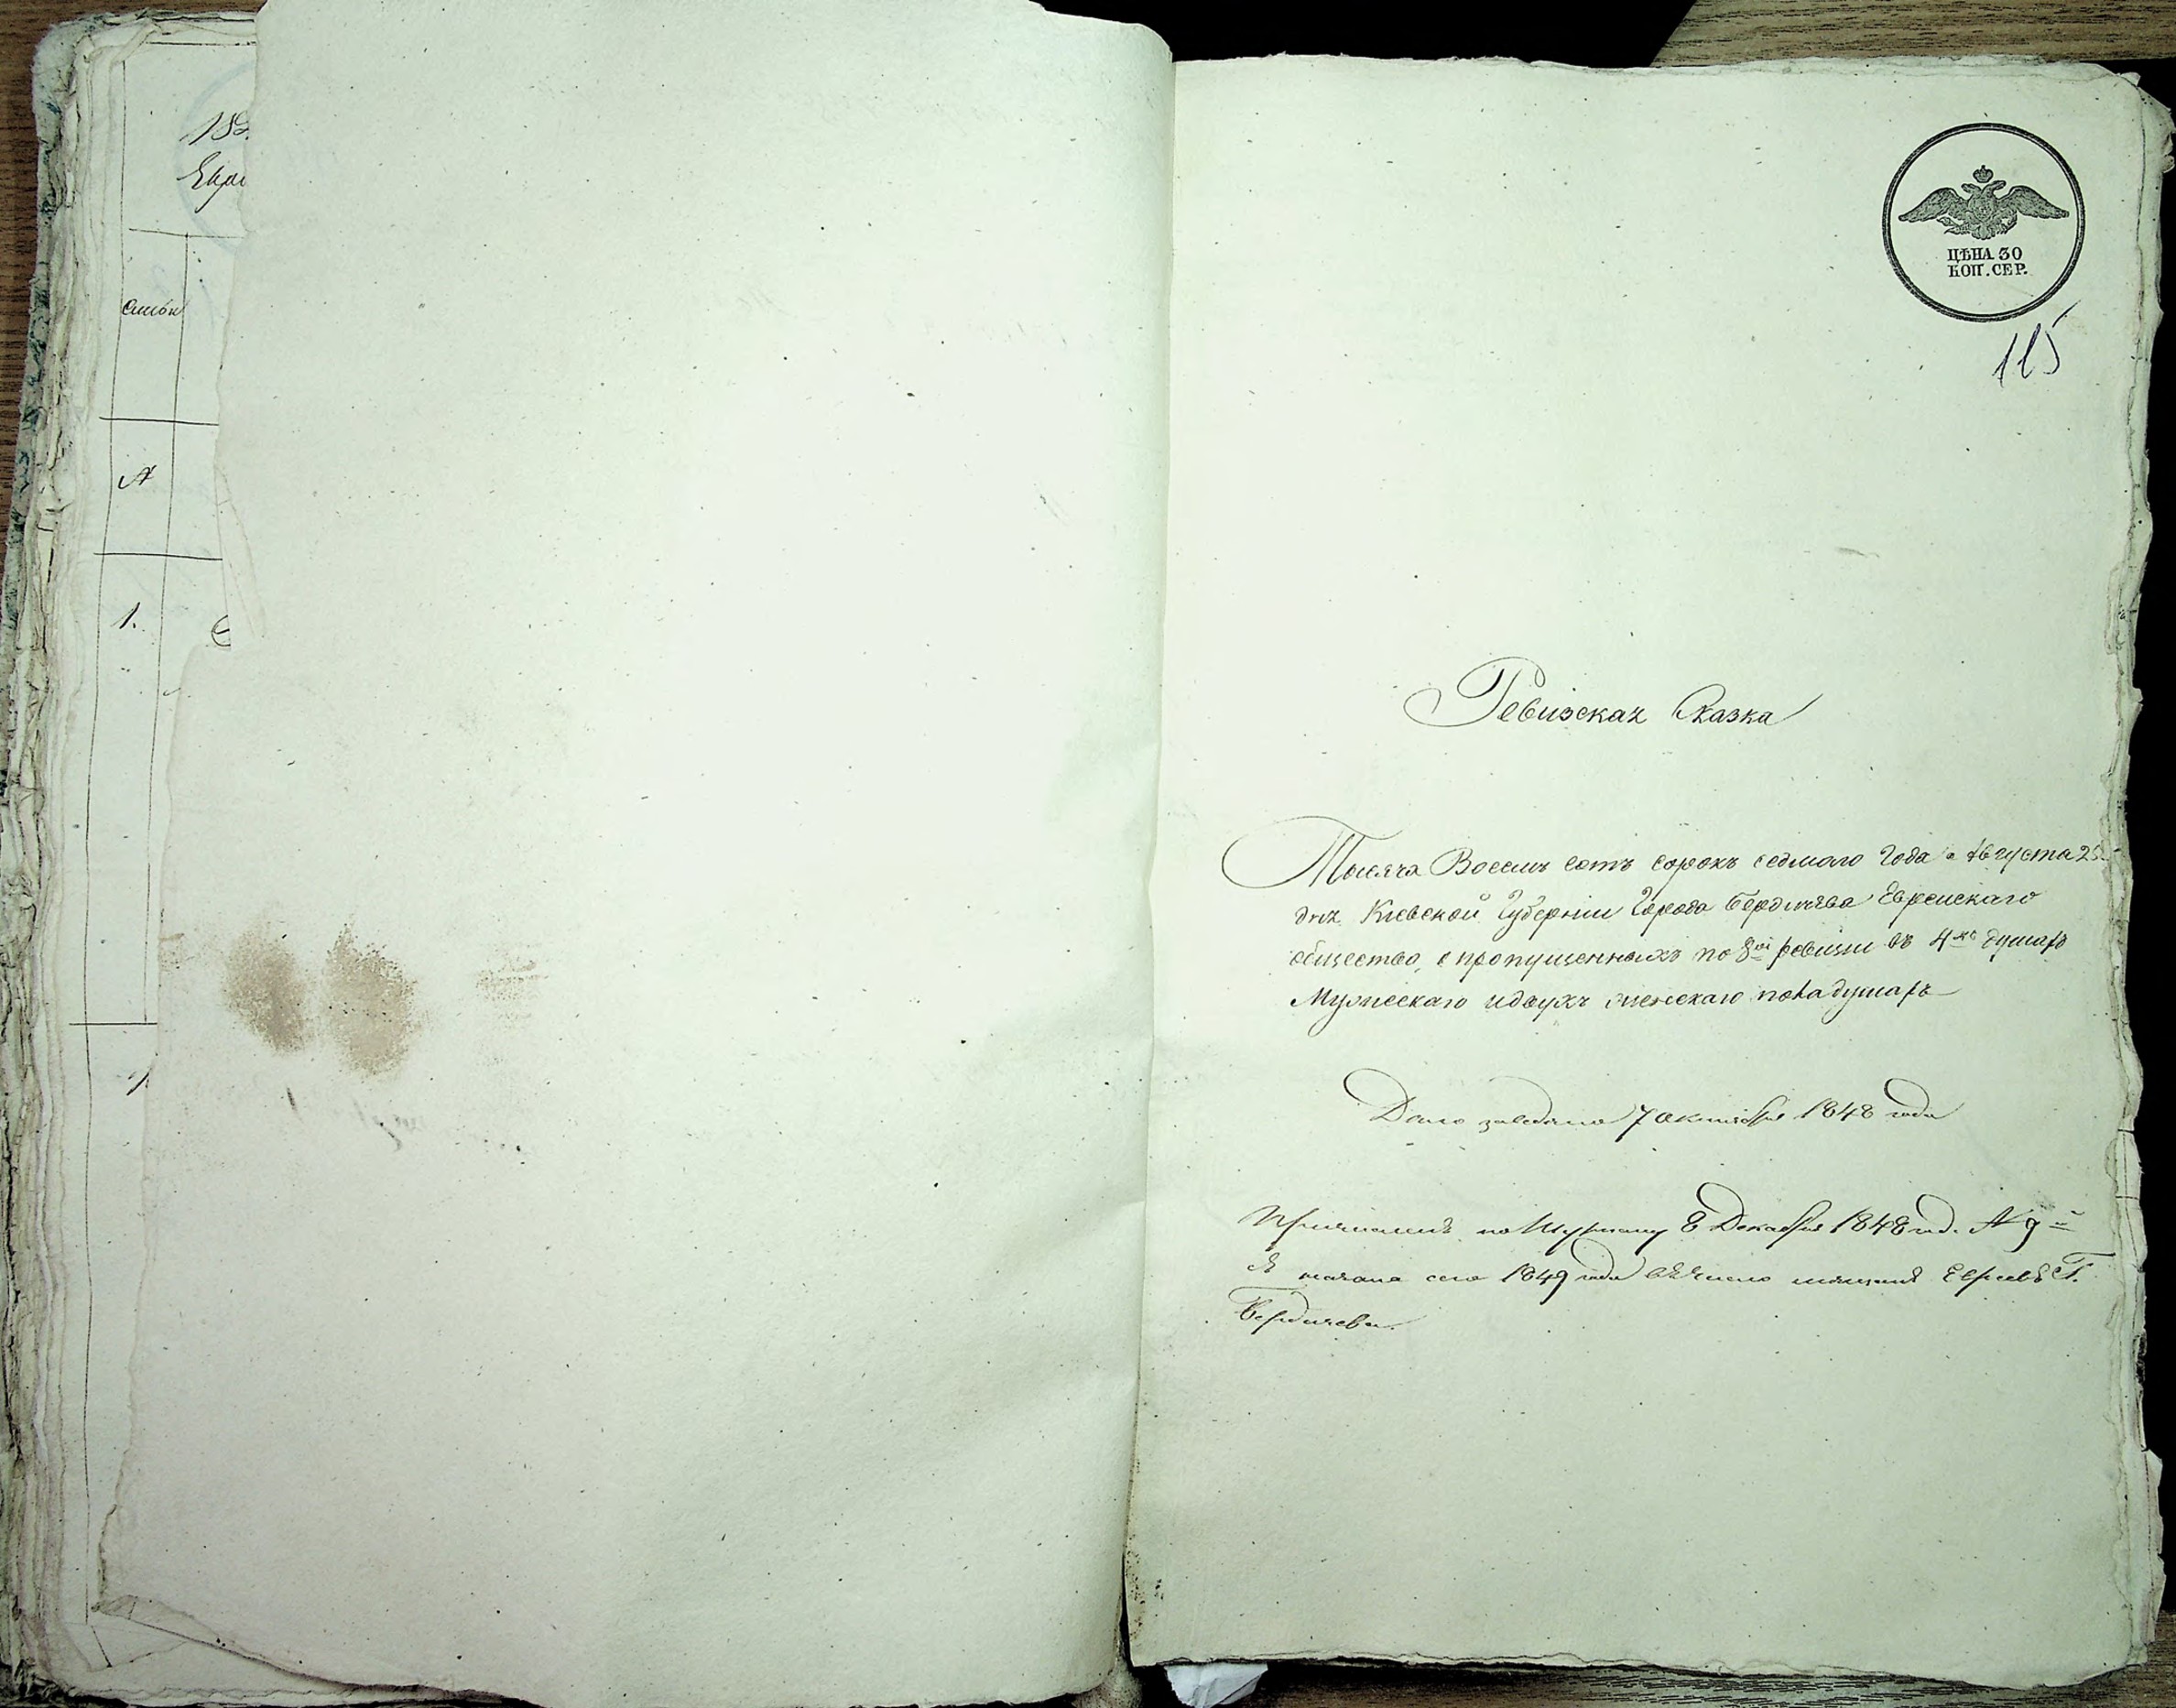 183
Евре
емьи
№
1.
ЦѢНА 30
КОП. СЕР.
115
Ревизская Сказка
Тысяча Восемь сотъ сорокъ седьмаго Года Августа 25
дня Киевской Губернии Города Бердичева Еврейскаго
общество, о пропущенныхъ по 8й ревизии въ 4хъ душахъ
Мужескаго и двухъ женскаго пола душахъ
Дело заведено 7 октября 1848 года
Причислены по Журналу 8 Декабря 1848 год. № 9й
съ начала сего 1849 года въ число мещанъ Евреевъ Г.
Бердичева.